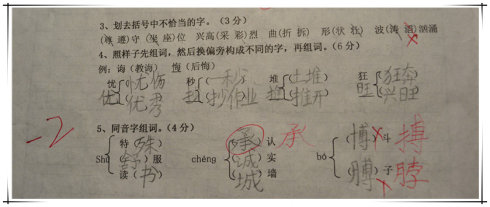 3、划去括号中不恰当的字。（3分）
（尊 遵）守 （坐 座）位 兴高（采 彩）烈 曲（折 拆） 形（状 壮） 波（涛 ）汹涌
4、照样子先组词，然后换偏旁构成不同的字，再组词。（6分）
例：诲（教诲） 悔（后悔）
忧（忧伤 秒（一秒 堆（土堆 狂 狂奔
优 优秀 抄 抄作业 推 推开 旺 兴旺
-2
5、同音字组词。（4分）
特（殊） （承）认 承 （博）斗 搏
Shū （舒）服 chéng （诚）实 bó
读（书） （城）墙 （膊）子 脖